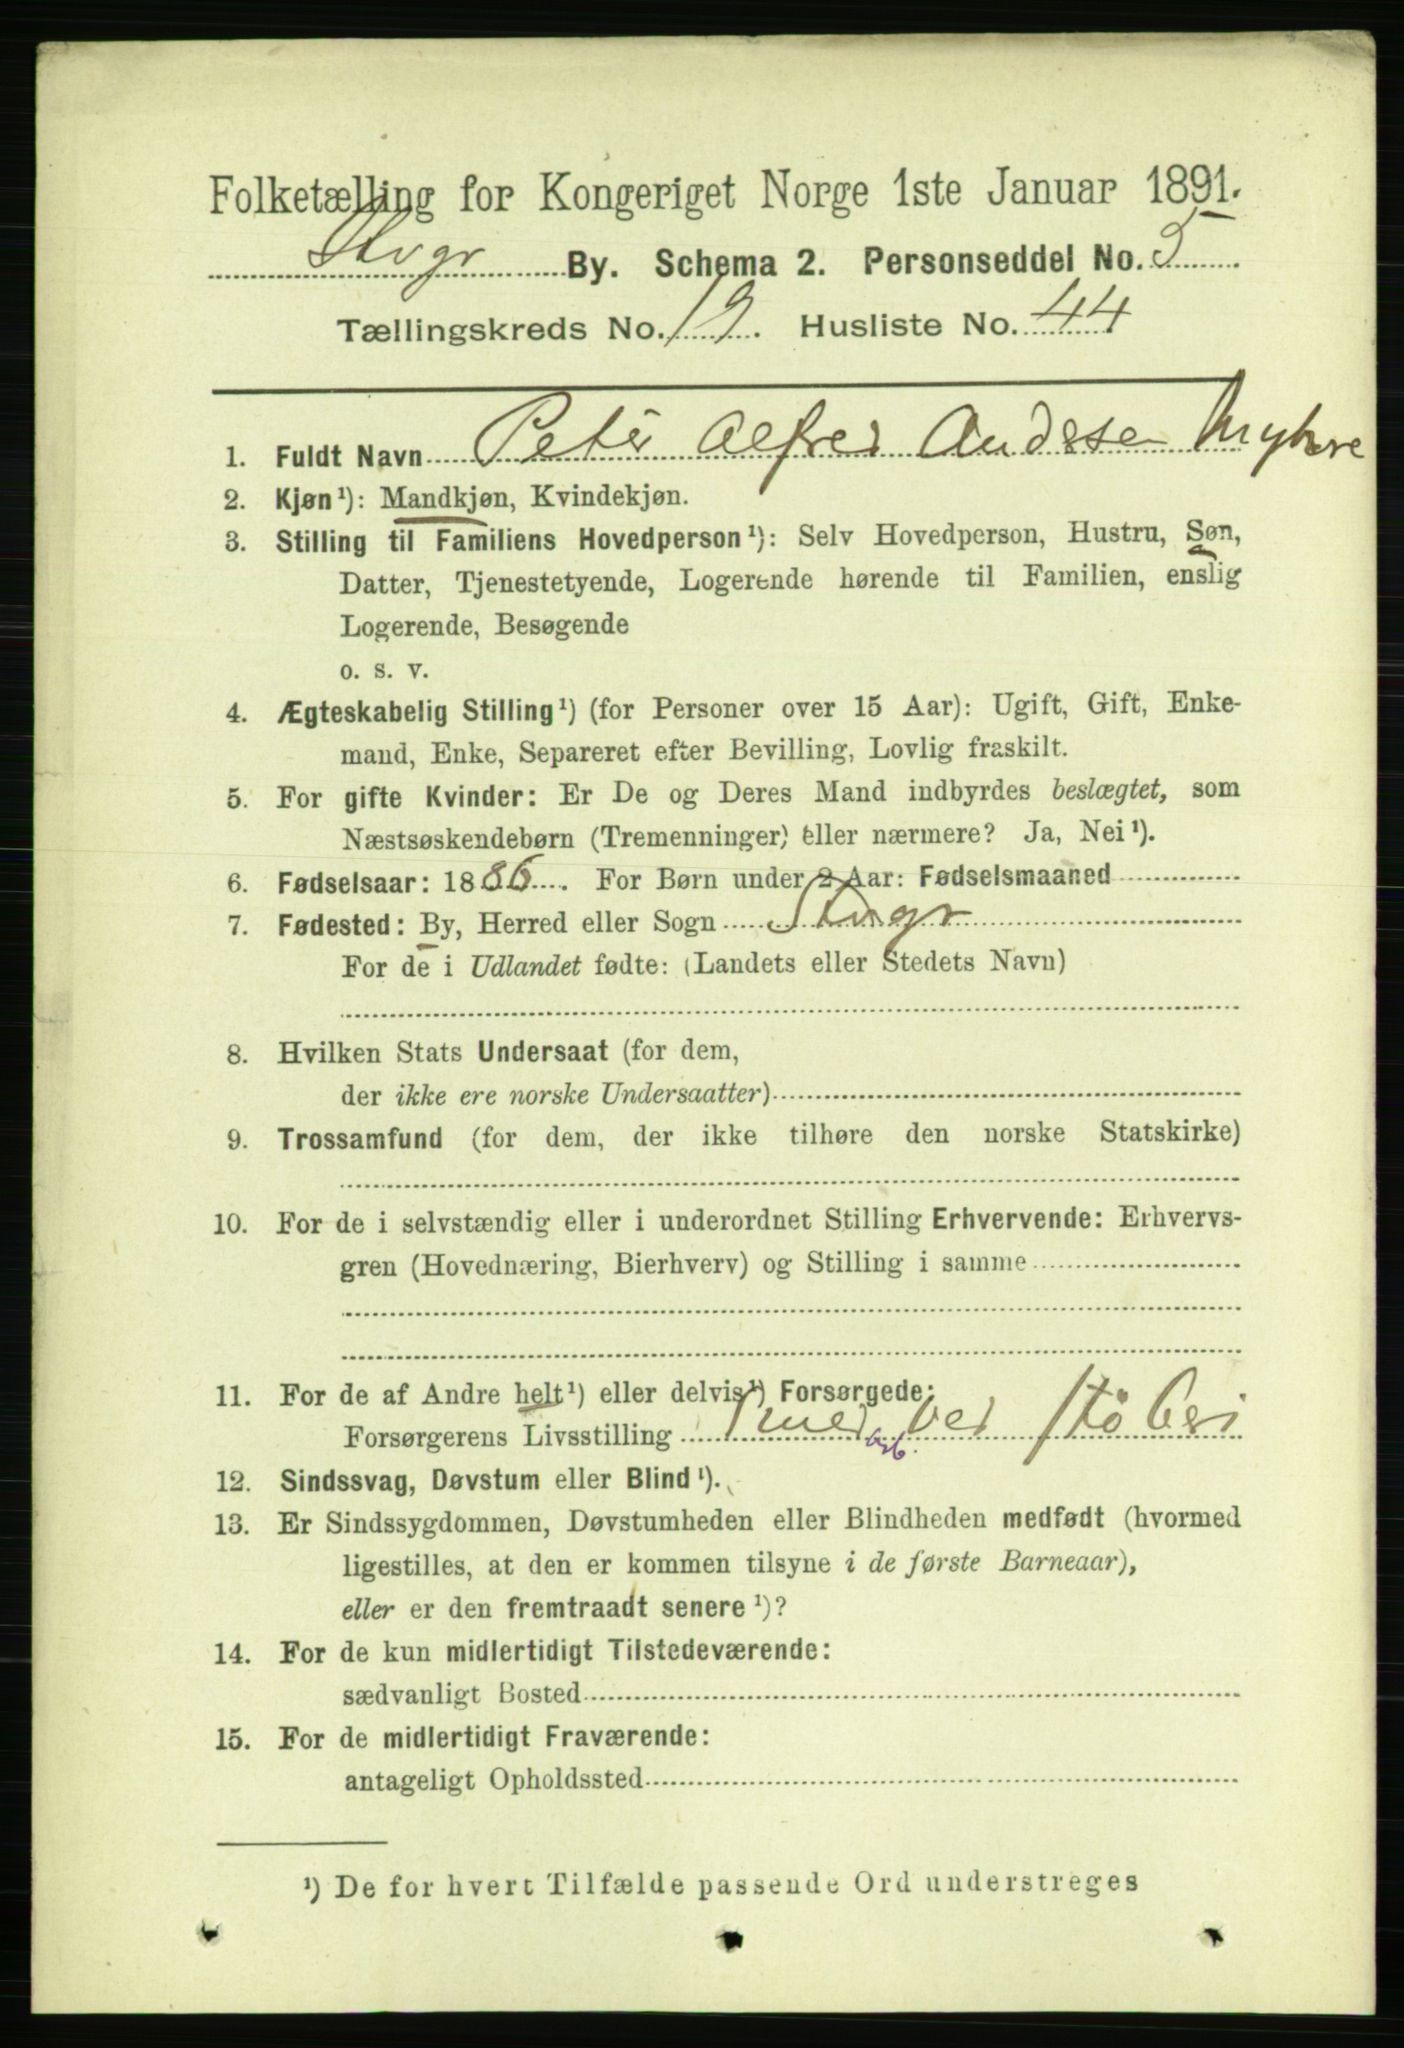 Folketælling for Kongeriget Norge 1ste Januar 1891.
Stvgr By. Schema 2. Personseddel No. 5
Tællingskreds No. 19. Husliste No. 44
1. Fuldt Navn Peter Alfred Andsen Myhre
2. Kjøn¹): Mandkjøn, Kvindekjøn.
3. Stilling til Familiens Hovedperson¹): Selv Hovedperson, Hustru, Søn,
Datter, Tjenestetyende, Logerende hørende til Familien, enslig
Logerende, Besøgende
o. s. v.
4. Ægteskabelig Stilling¹) (for Personer over 15 Aar): Ugift, Gift, Enke-
mand, Enke, Separeret efter Bevilling, Lovlig fraskilt.
5. For gifte Kvinder: Er De og Deres Mand indbyrdes beslægtet, som
Næstsøskendebørn (Tremenninger) eller nærmere? Ja, Nei¹).
6. Fødselsaar: 1886. For Børn under 2 Aar: Fødselsmaaned
7. Fødested: By, Herred eller Sogn Stvgr
For de i Udlandet fødte: (Landets eller Stedets Navn)
8. Hvilken Stats Undersaat (for dem,
der ikke ere norske Undersaatter)
9. Trossamfund (for dem, der ikke tilhøre den norske Statskirke)
10. For de i selvstændig eller i underordnet Stilling Erhvervende: Erhvervs-
gren (Hovednæring, Bierhverv) og Stilling i samme
11. For de af Andre helt¹) eller delvis¹) Forsørgede:
Forsørgerens Livsstilling Smed arb. ved Støberi
12. Sindssvag, Døvstum eller Blind¹).
13. Er Sindssygdommen, Døvstumheden eller Blindheden medfødt (hvormed
ligestilles, at den er kommen tilsyne i de første Barneaar),
eller er den fremtraadt senere¹)?
14. For de kun midlertidigt Tilstedeværende:
sædvanligt Bosted
15. For de midlertidigt Fraværende:
antageligt Opholdssted
¹) De for hvert Tilfælde passende Ord understreges